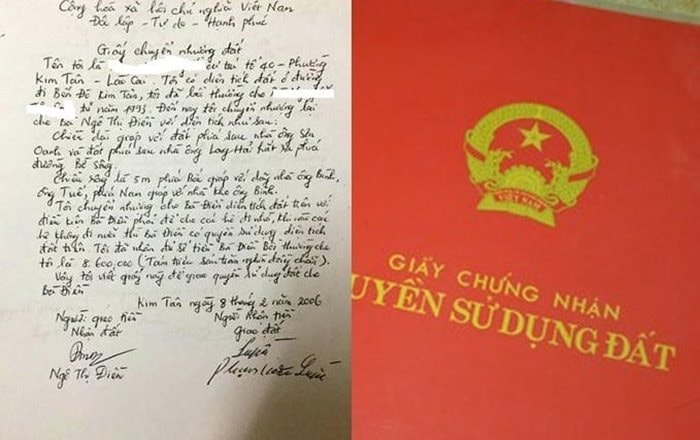 Cộng hòa xã hội chủ nghĩa Việt Nam
Độc lập - Tự do - Hạnh phúc
Giấy chuyển nhượng đất
Tên tôi là cư trú tổ 40 - Phường
Kim Tân - Lào Cai. Tôi có diện tích đất ở đường
đi Bến Đá Kim Tân, tôi đã bồi thường cho
từ năm 1993. Đến nay tôi chuyển nhượng lại
cho Bà Ngô Thị Điền với diện tích như sau:
Chiều dài giáp với đất phía sau nhà ông Sơn
Oanh và đất phía sau nhà ông Long Hải hất ra phía
đường Bờ Sông.
Chiều rộng là 5m phía Bắc giáp với dãy nhà ông Bình,
ông Tuệ, phía Nam giáp với nhà kho ông Bình.
Tôi chuyển nhượng cho Bà Điền diện tích đất trên với
điều kiện Bà Điền phải để cho các hộ đi nhờ, khi nào các
hộ không đi nữa thì Bà Điền có quyền sử dụng diện tích
đất trên. Tôi đã nhận đủ số tiền Bà Điền Bồi thường cho
tôi là 8.600.000 (Tám triệu sáu trăm nghìn đồng chẵn).
Vậy tôi viết giấy này để giao quyền sử dụng đất cho
Bà Điền
Kim Tân ngày 8 tháng 2 năm 2006
Người giao tiền Người nhận tiền
Nhận đất Giao đất
Ngô Thị Điền
VIỆT NAM
GIẤY CHỨNG NHẬN
UYỀN SỬ DỤNG ĐẤT